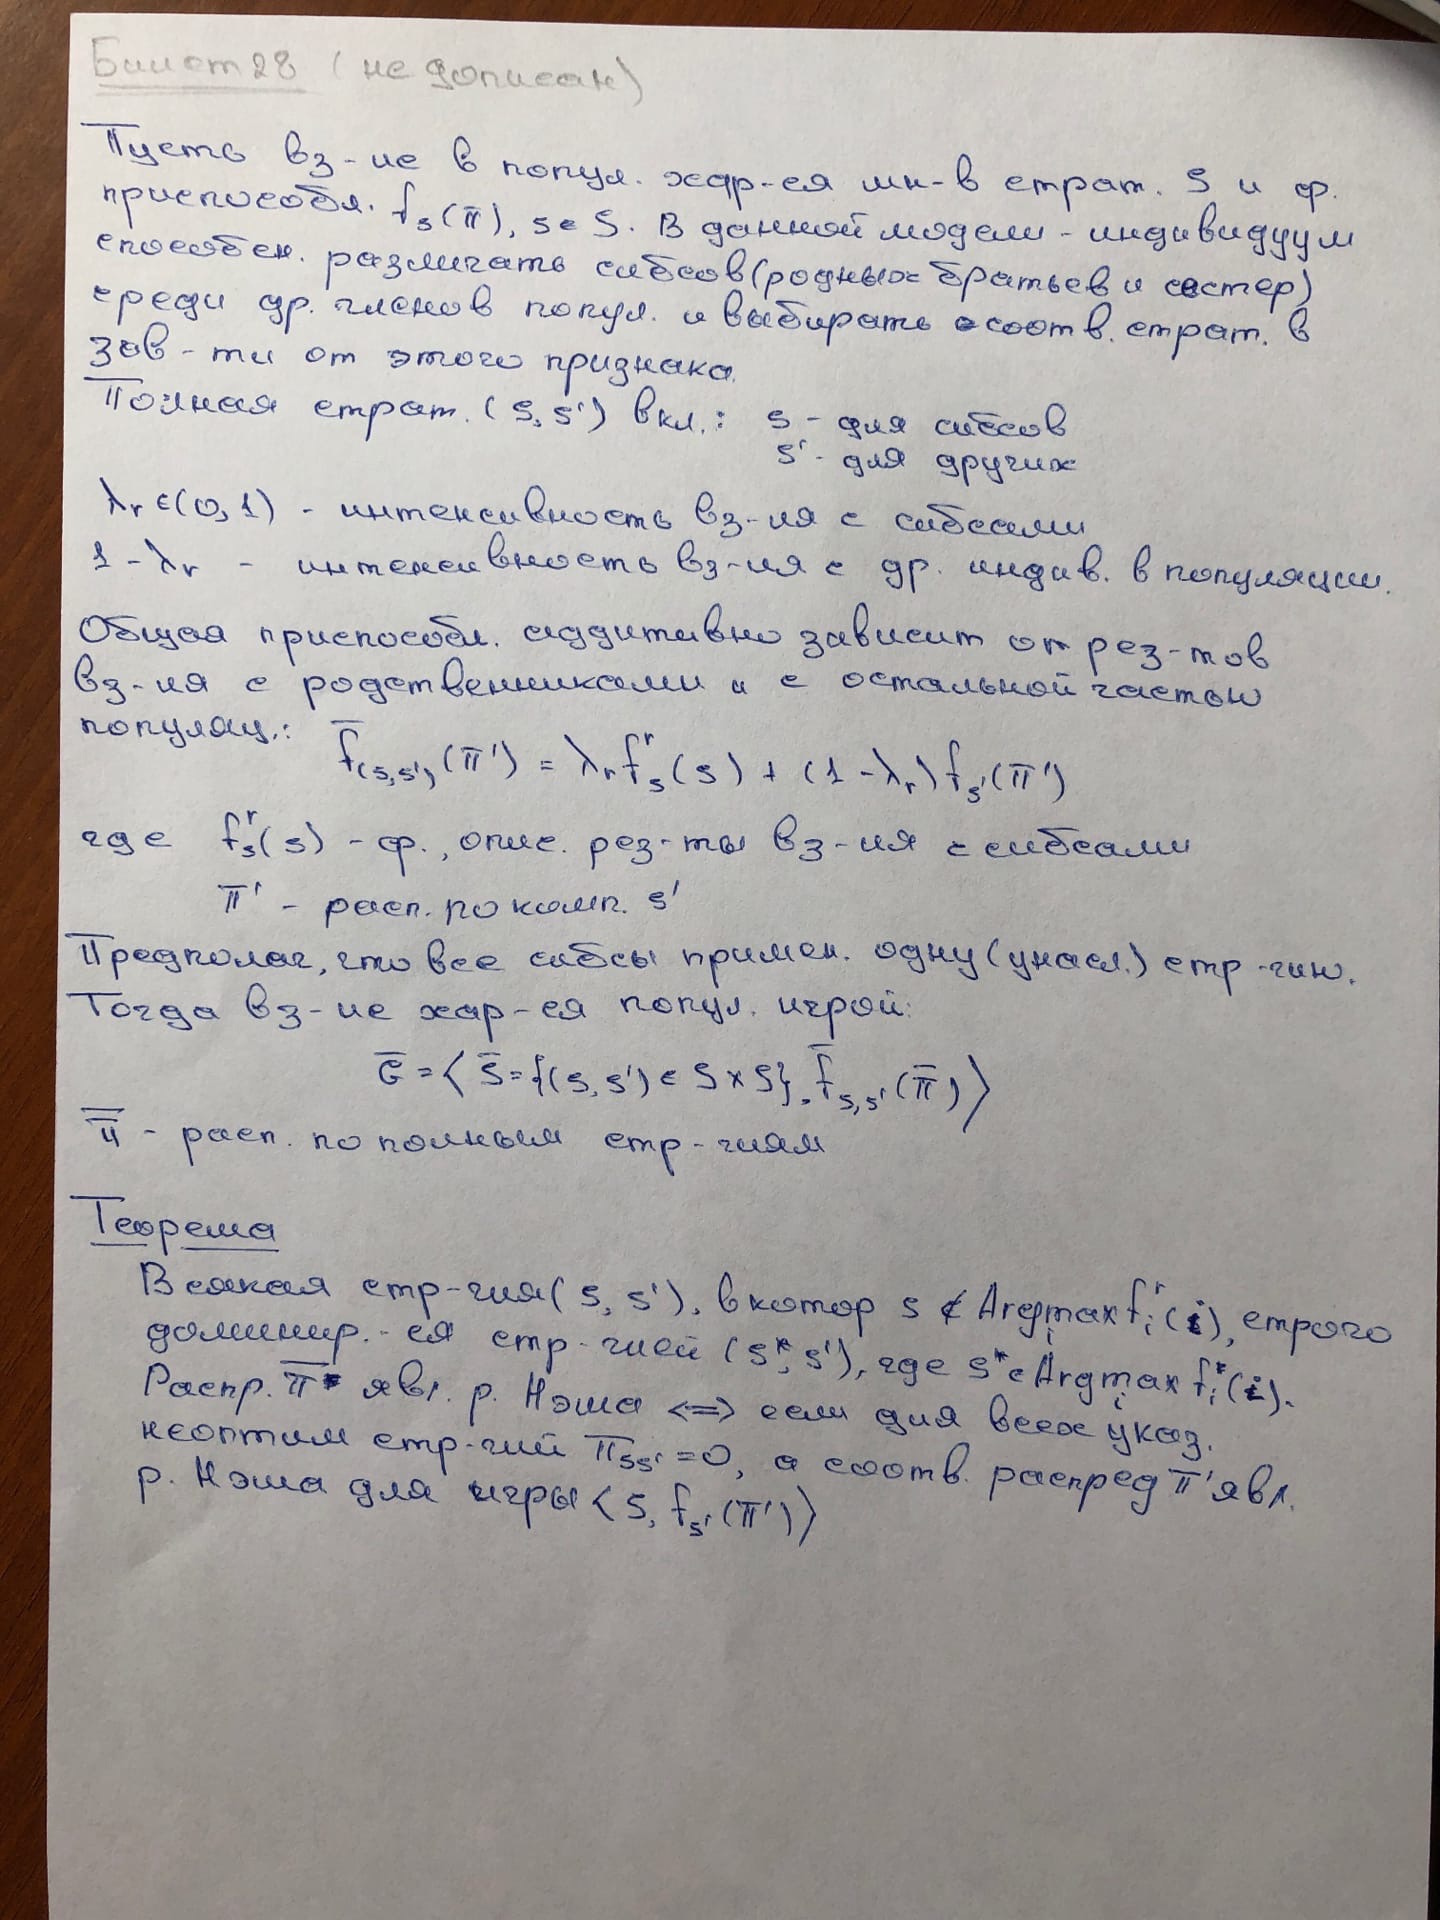 Билет 28 (не дописан)
Пусть вз-ие в попул. хар-ся мн-в страт. S и ф.
приспособл. f_s(π), s∈S. В данной модели - индивидуум
способен. различать сибсов (родных братьев и сестер)
среди др. членов попул. и выбирать соотв. страт. в
зав-ти от этого признака.
Полная страт. (s, s') вкл.: s - для сибсов
s' - для других
λ_r ∈ (0, 1) - интенсивность вз-ия с сибсами
1 - λ_r - интенсивность вз-ия с др. индив. в популяции.
Общая приспособл. аддитивно зависит от рез-тов
вз-ия с родственниками и с остальной частью
популяц.: f̄_(s,s')(π') = λ_r f_s^r(s) + (1 - λ_r) f_s'(π')
где f_s^r(s) - ф., опис. рез-ты вз-ия с сибсами
π' - расп. по комп. s'
Предполаг, что все сибсы примен. одну (унасл.) стр-гию.
Тогда вз-ие хар-ся попул. игрой:
Ḡ = ⟨ S̄ = {(s, s') ∈ S × S}, f̄_s,s'(π̄) ⟩
π̄ - расп. по полным стр-гиям
Теорема
Всякая стр-гия (s, s'), в котор s ∉ Argmax_i f_i^r(i), строго
доминир.-ся стр-гией (s*, s'), где s* ∈ Argmax_i f_i^r(i).
Распр. π̄* явл. р. Нэша <=> если для всех указ.
неоптим стр-гий π_ss' = 0, а соотв. распред π' явл.
р. Нэша для игры ⟨ S, f_s'(π') ⟩